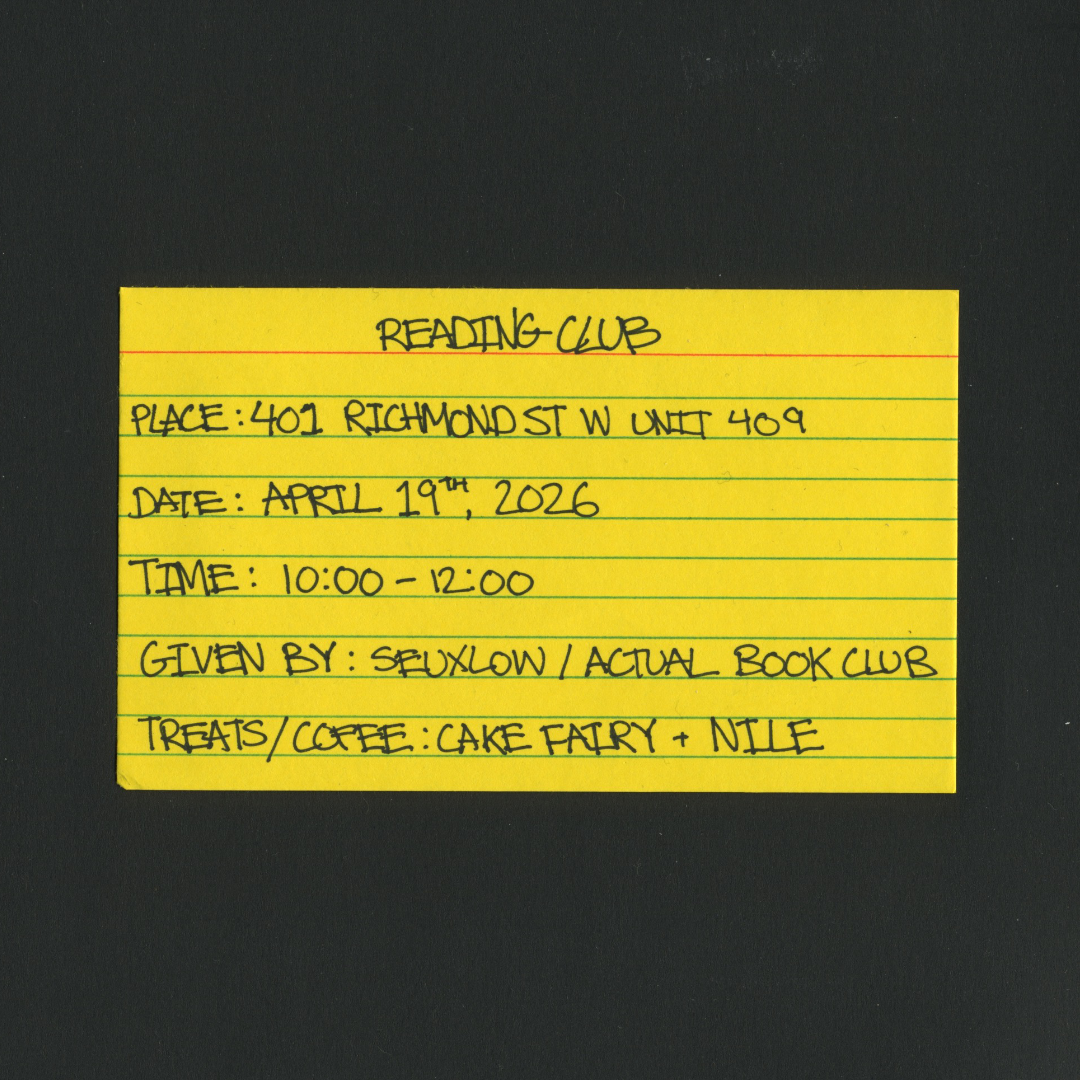 READING CLUB
PLACE: 401 RICHMOND ST W UNIT 409
DATE: APRIL 19TH, 2026
TIME: 10:00 - 12:00
GIVEN BY: SEUXLOW / ACTUAL BOOK CLUB
TREATS/COFEE: CAKE FAIRY + NILE